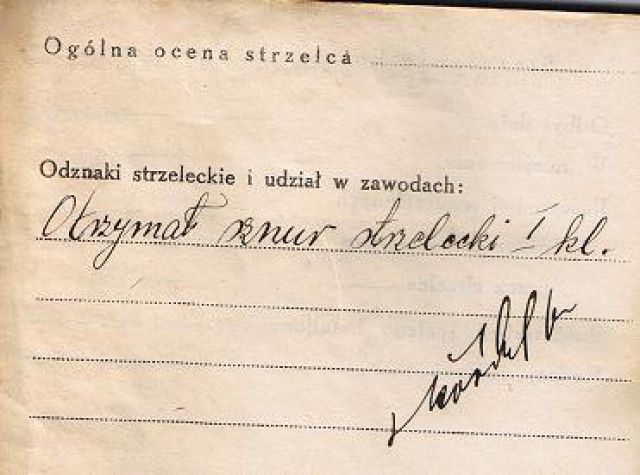 Ogólna ocena strzelca
Odznaki strzeleckie i udział w zawodach:
Otrzymał sznur strzelecki I kl.